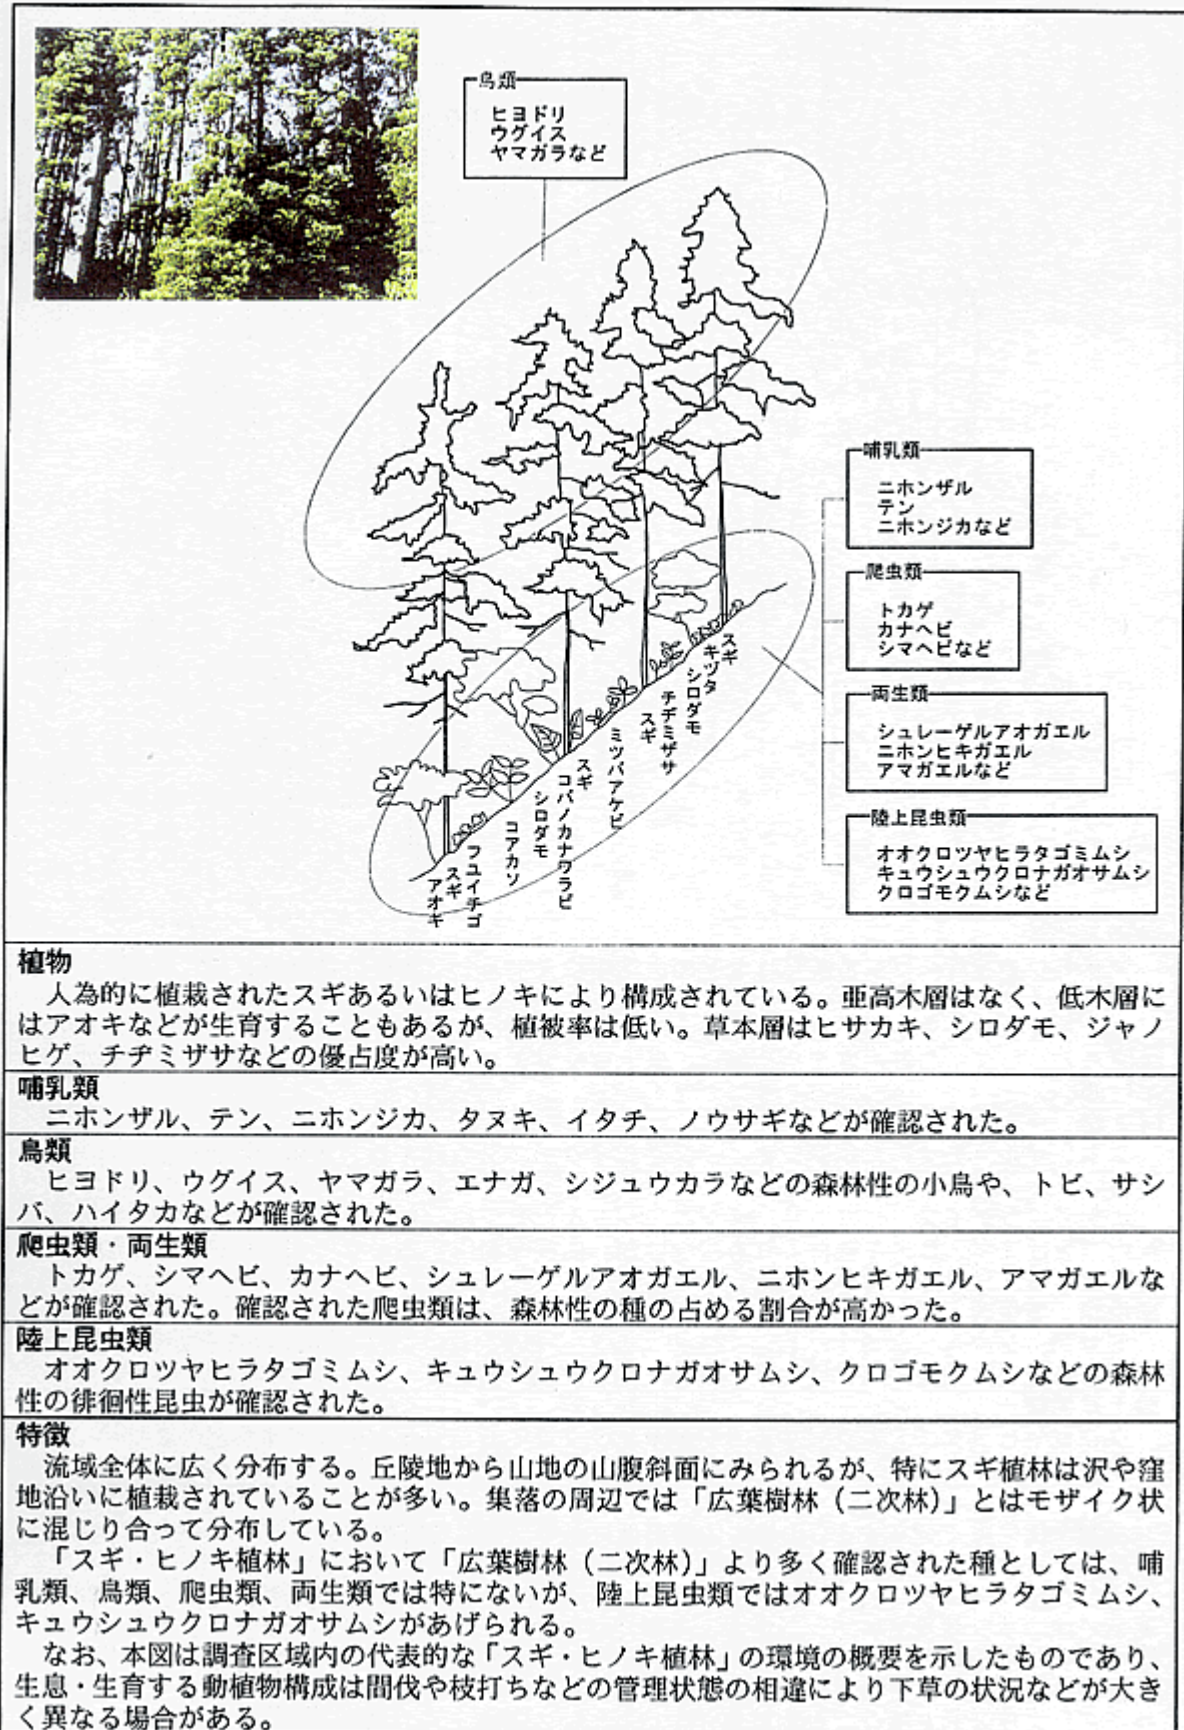 鳥類
ヒヨドリ
ウグイス
ヤマガラなど
哺乳類
ニホンザル
テン
ニホンジカなど
爬虫類
トカゲ
カナヘビ
シマヘビなど
両生類
シュレーゲルアオガエル
ニホンヒキガエル
アマガエルなど
陸上昆虫類
オオクロツヤヒラタゴミムシ
キュウシュウクロナガオサムシ
クロゴモクムシなど
アオキ
スギ
フユイチゴ
コアカソ
シロダモ
コバノカナワラビ
スギ
ミツバアケビ
スギ
チヂミザサ
シロダモ
キヅタ
スギ
植物
人為的に植栽されたスギあるいはヒノキにより構成されている。亜高木層はなく、低木層に
はアオキなどが生育することもあるが、植被率は低い。草本層はヒサカキ、シロダモ、ジャノ
ヒゲ、チヂミザサなどの優占度が高い。
哺乳類
ニホンザル、テン、ニホンジカ、タヌキ、イタチ、ノウサギなどが確認された。
鳥類
ヒヨドリ、ウグイス、ヤマガラ、エナガ、シジュウカラなどの森林性の小鳥や、トビ、サシ
バ、ハイタカなどが確認された。
爬虫類・両生類
トカゲ、シマヘビ、カナヘビ、シュレーゲルアオガエル、ニホンヒキガエル、アマガエルな
どが確認された。確認された爬虫類は、森林性の種の占める割合が高かった。
陸上昆虫類
オオクロツヤヒラタゴミムシ、キュウシュウクロナガオサムシ、クロゴモクムシなどの森林
性の徘徊性昆虫が確認された。
特徴
流域全体に広く分布する。丘陵地から山地の山腹斜面にみられるが、特にスギ植林は沢や窪
地沿いに植栽されていることが多い。集落の周辺では「広葉樹林（二次林）」とはモザイク状
に混じり合って分布している。
「スギ・ヒノキ植林」において「広葉樹林（二次林）」より多く確認された種としては、哺
乳類、鳥類、爬虫類、両生類では特にないが、陸上昆虫類ではオオクロツヤヒラタゴミムシ、
キュウシュウクロナガオサムシがあげられる。
なお、本図は調査区域内の代表的な「スギ・ヒノキ植林」の環境の概要を示したものであり、
生息・生育する動植物構成は間伐や枝打ちなどの管理状態の相違により下草の状況などが大き
く異なる場合がある。